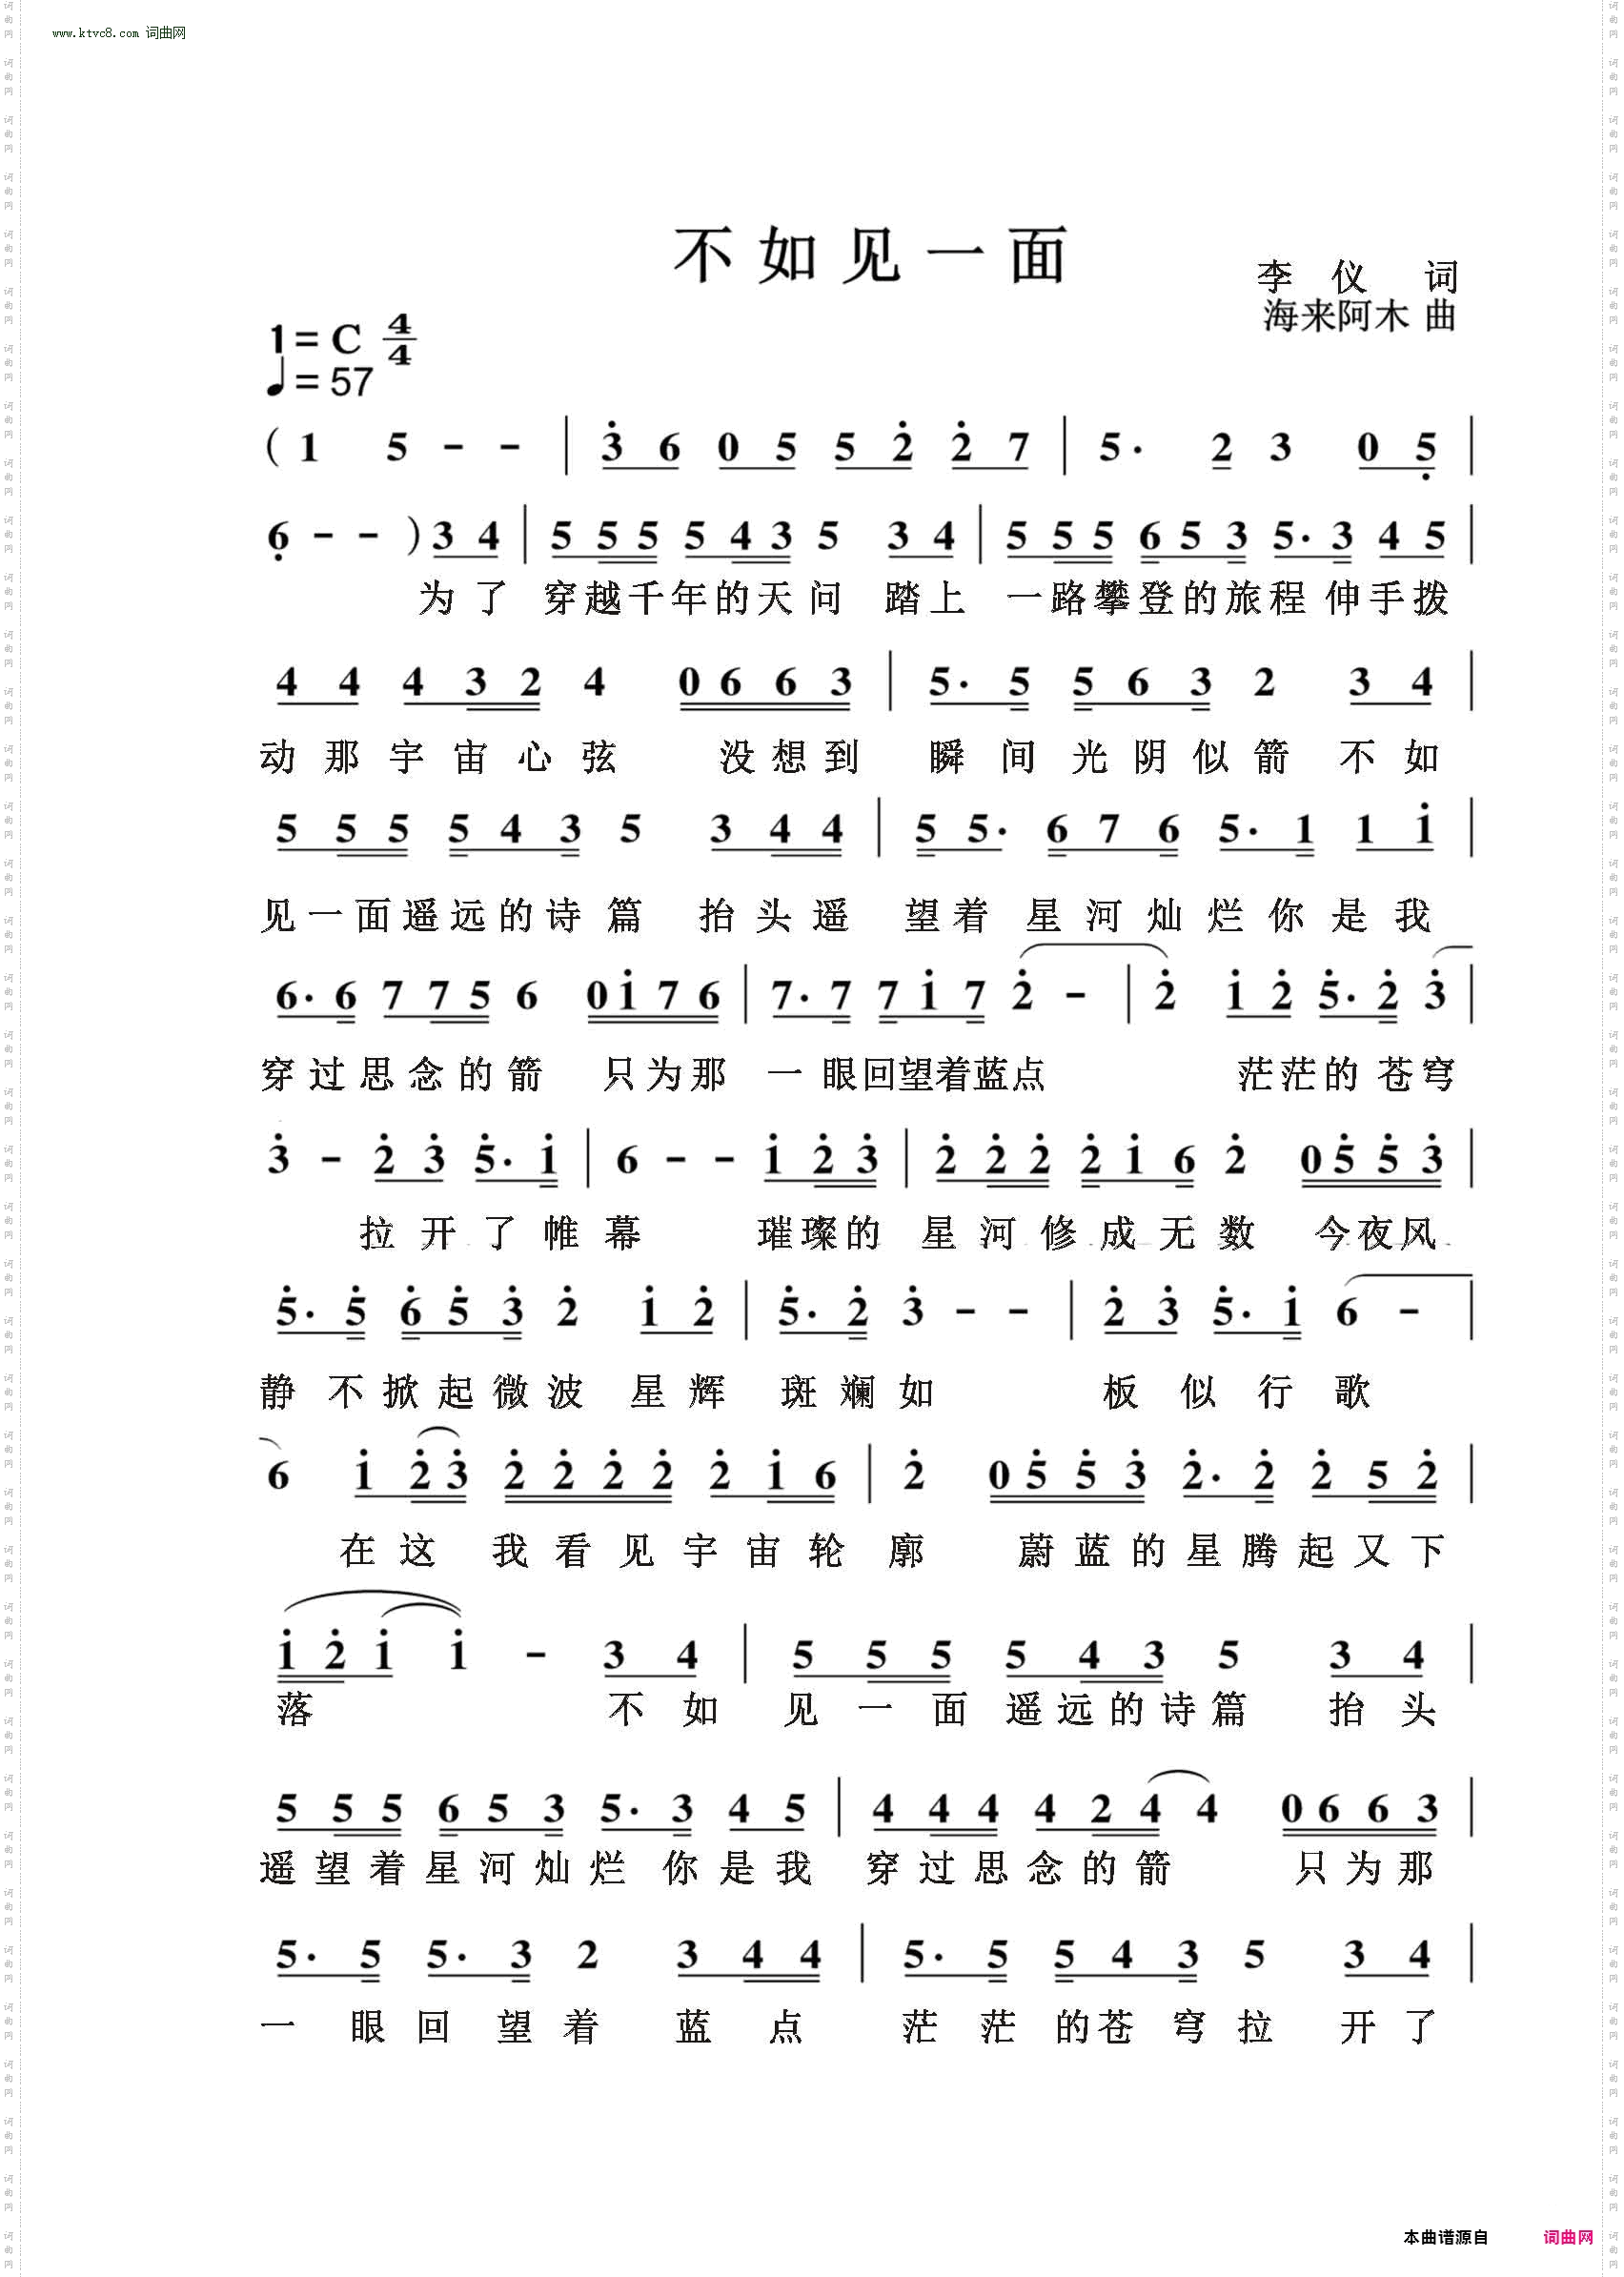 www.ktvc8.com 词曲网
不如见一面
李仪 词
海来阿木 曲
1=C 4/4
♩=57
(1 5 - - | 3̇ 6 0 5 5 2̇ 2̇ 7 | 5· 2 3 0 5̣ |
6̣ - - ) 3 4 | 5 5 5 5 4 3 5 3 4 | 5 5 5 6 5 3 5· 3 4 5 |
为了 穿越千年的天问 踏上 一路攀登的旅程 伸手拨
4 4 4 3 2 4 0 6 6 3 | 5· 5 5 6 3 2 3 4 |
动那宇宙心弦 没想到 瞬间光阴似箭 不如
5 5 5 5 4 3 5 3 4 4 | 5 5· 6 7 6 5· 1 1 1̇ |
见一面遥远的诗篇 抬头遥 望着 星河灿烂你是我
6· 6 7 7 5 6 0 1̇ 7 6 | 7· 7 7 1̇ 7 2̇ - | 2̇ 1̇ 2̇ 5̇· 2̇ 3̇ |
穿过思念的箭 只为那 一眼回望着蓝点 茫茫的苍穹
3̇ - 2̇ 3̇ 5̇· 1̇ | 6 - - 1̇ 2̇ 3̇ | 2̇ 2̇ 2̇ 2̇ 1̇ 6 2̇ 0 5̇ 5̇ 3̇ |
拉开了帷幕 璀璨的 星河修成无数 今夜风
5̇· 5̇ 6̇ 5̇ 3̇ 2̇ 1̇ 2̇ | 5̇· 2̇ 3̇ - - | 2̇ 3̇ 5̇· 1̇ 6 - |
静不掀起微波 星辉 斑斓如 板似行歌
6 1̇ 2̇ 3̇ 2̇ 2̇ 2̇ 2̇ 2̇ 1̇ 6 | 2̇ 0 5̇ 5̇ 3̇ 2̇· 2̇ 2̇ 5̇ 2̇ |
在这 我看见宇宙轮廓 蔚蓝的星腾起又下
1̇ 2̇ 1̇ 1̇ - 3 4 | 5 5 5 5 4 3 5 3 4 |
落 不如 见一面遥远的诗篇 抬头
5 5 5 6 5 3 5· 3 4 5 | 4 4 4 4 2 4 4 0 6 6 3 |
遥望着星河灿烂 你是我 穿过思念的箭 只为那
5· 5 5· 3 2 3 4 4 | 5· 5 5 4 3 5 3 4 |
一眼回望着蓝点 茫茫的苍穹拉 开了
本曲谱源自 词曲网